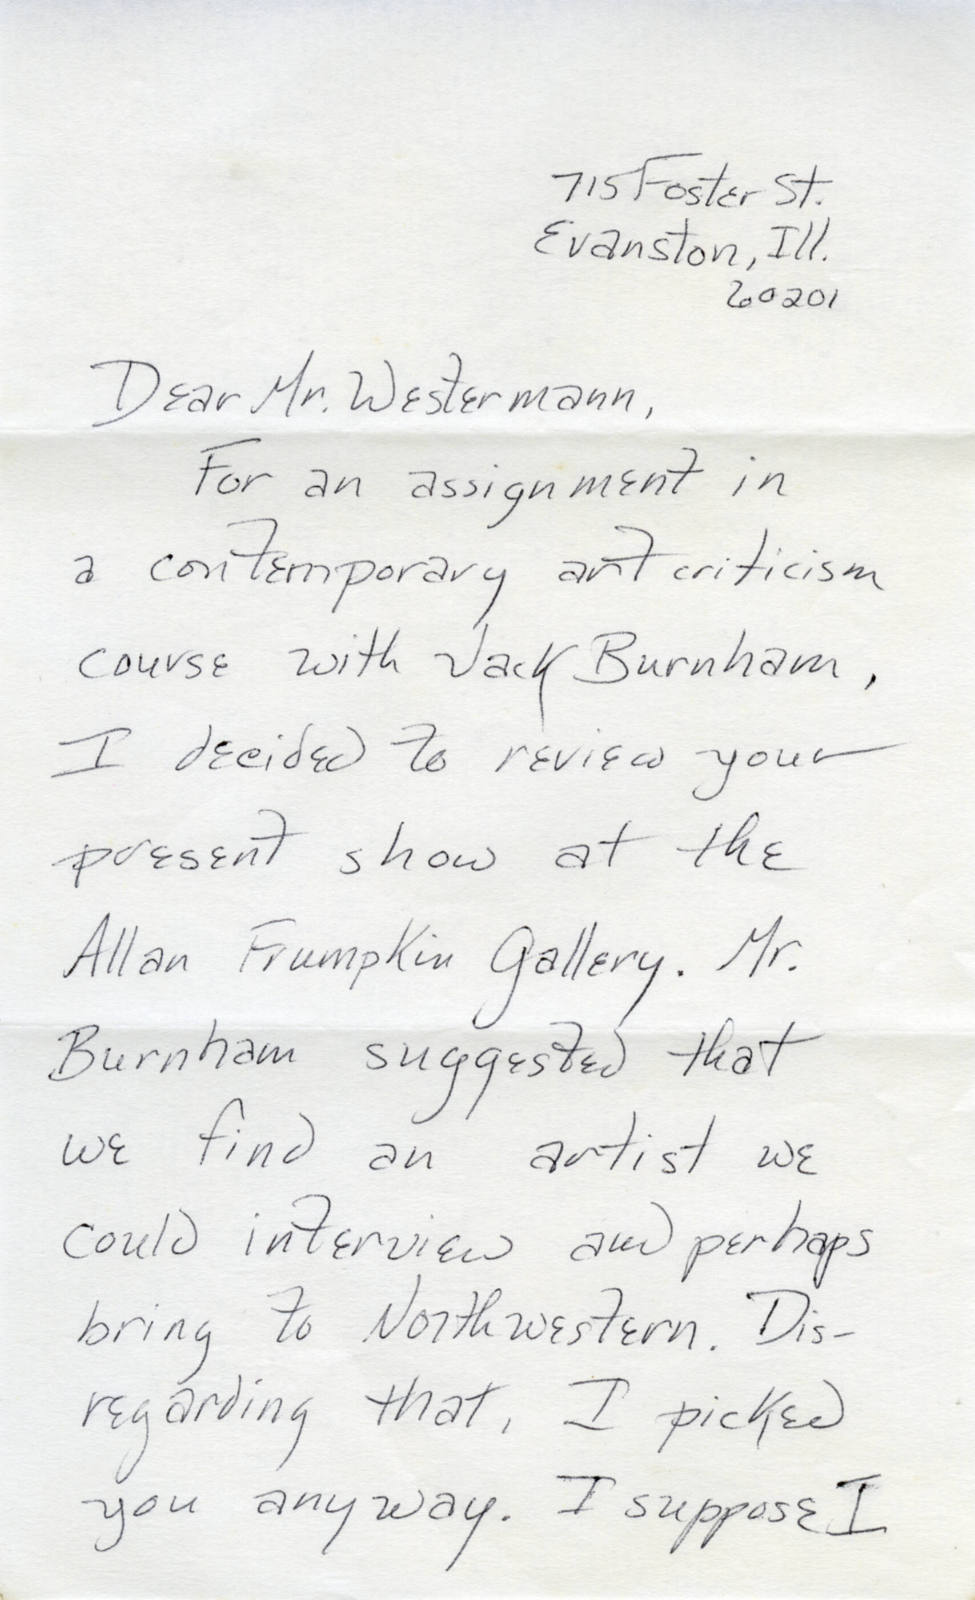 715 Foster St.
Evanston, Ill.
60201
Dear Mr. Westermann,
For an assignment in
a contemporary art criticism
course with Jack Burnham,
I decided to review your
present show at the
Allan Frumpkin Gallery. Mr.
Burnham suggested that
we find an artist we
could interview and perhaps
bring to Northwestern. Dis-
regarding that, I picked
you anyway. I suppose I